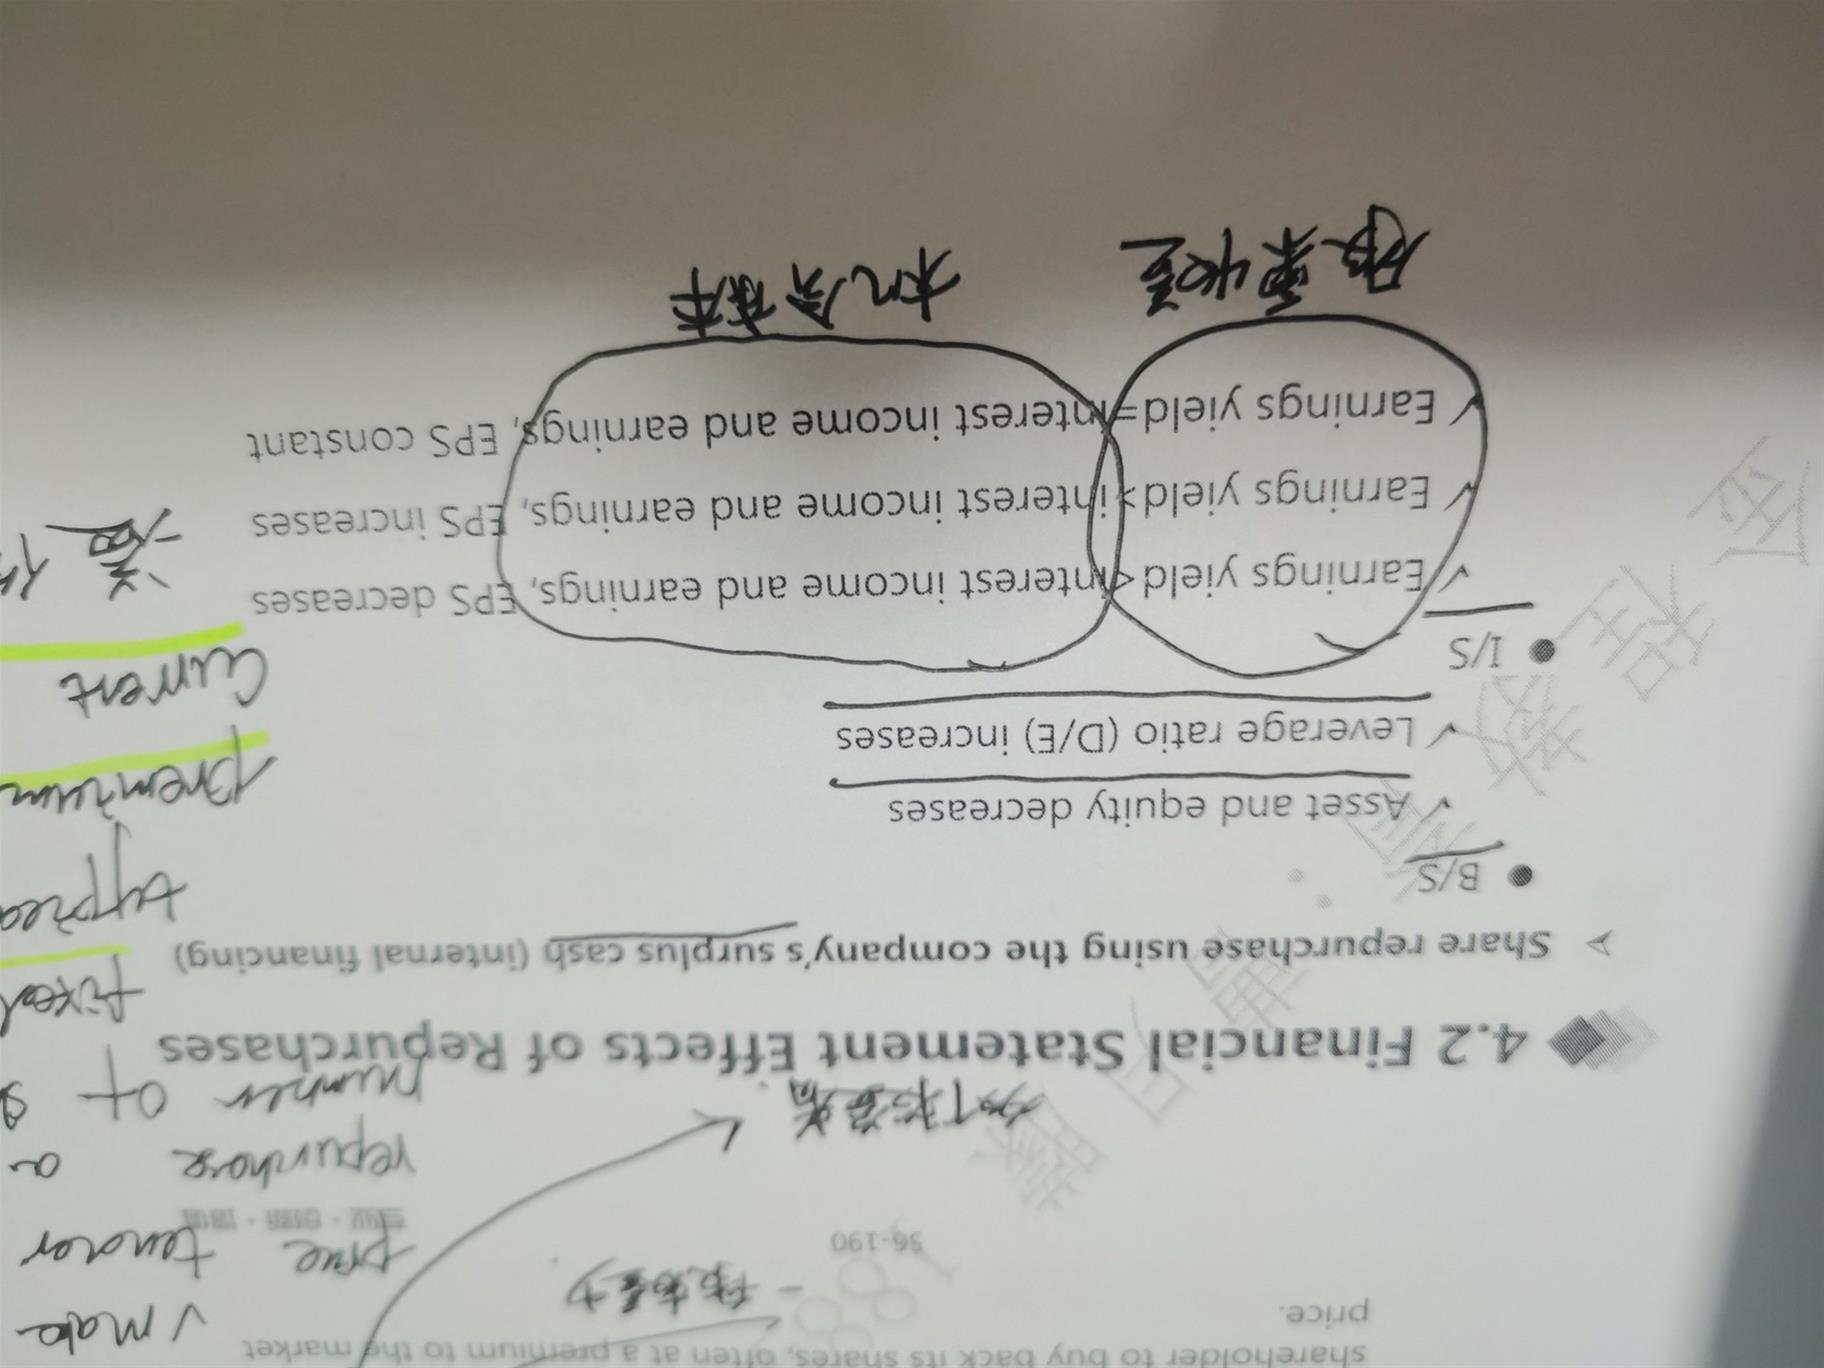 shareholder to buy back its shares, often at a premium to the market
price.
56-190
188
专业·创新·增值
4.2 Financial Statement Effects of Repurchases
➢ Share repurchase using the company's surplus cash (internal financing)
● B/S
✓ Asset and equity decreases
✓ Leverage ratio (D/E) increases
● I/S
✓ Earnings yield < interest income and earnings, EPS decreases
✓ Earnings yield > interest income and earnings, EPS increases
✓ Earnings yield = interest income and earnings, EPS constant
股票收益
机会成本
✓ make
price tender
repurchase a
number of
fixed
typica
premium
Current